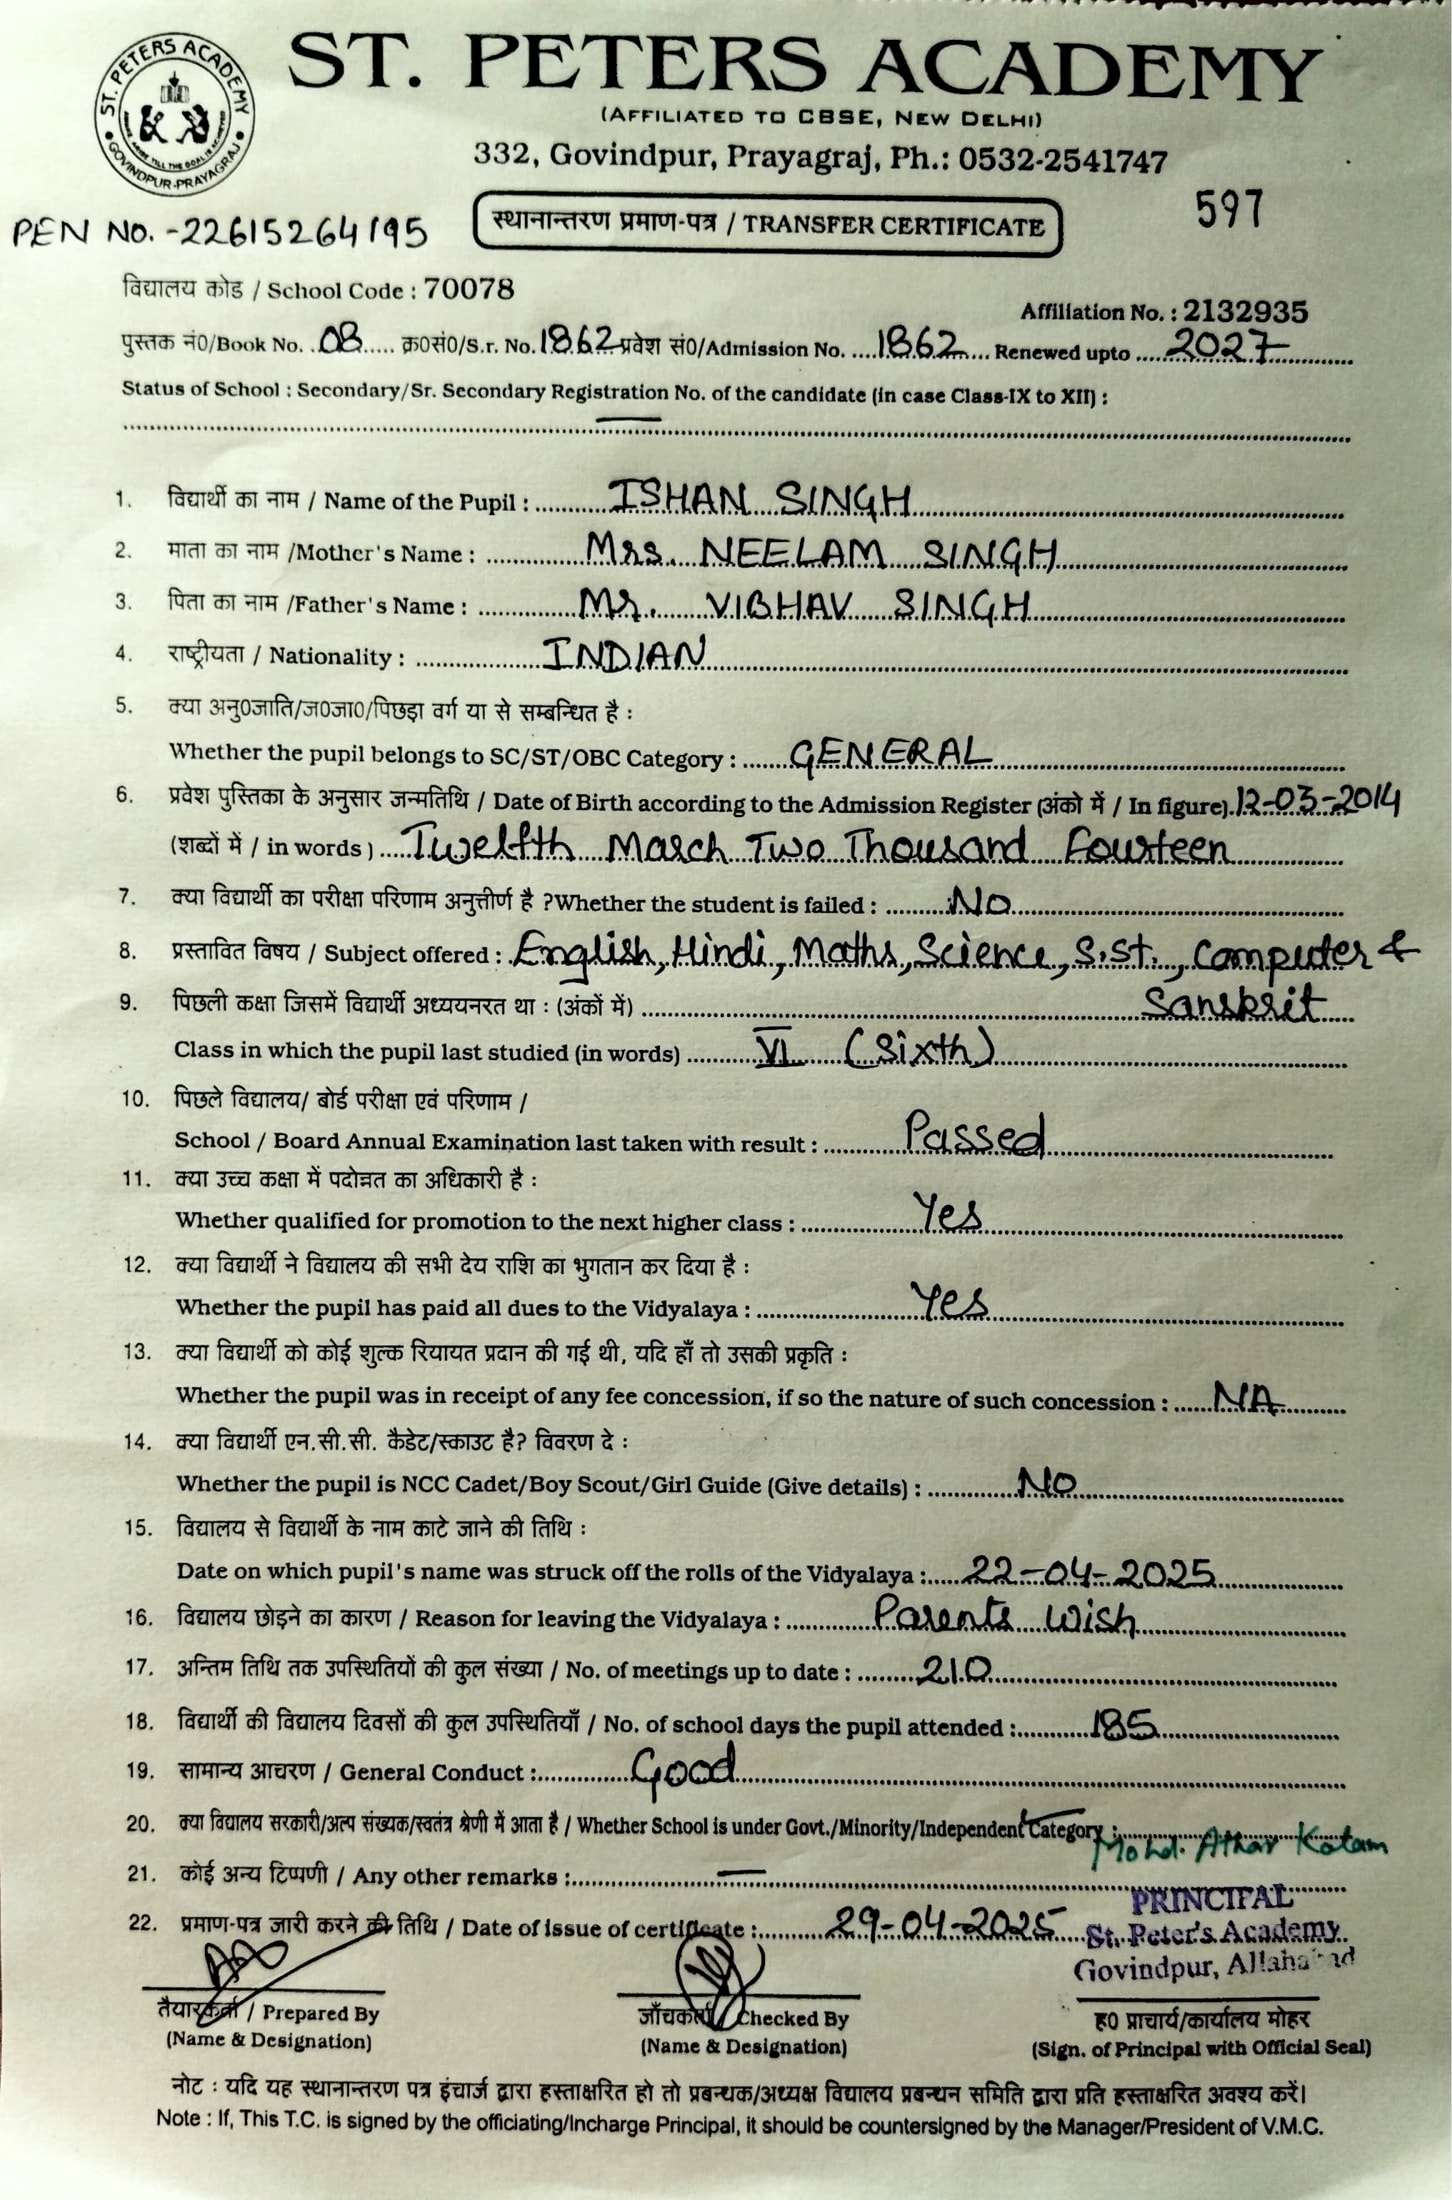 ST. PETERS ACADEMY
GOVINDPUR-PRAYAGRAJ
ST. PETERS ACADEMY
(AFFILIATED TO CBSE, NEW DELHI)
332, Govindpur, Prayagraj, Ph.: 0532-2541747
597
PEN NO. -22615264195
स्थानान्तरण प्रमाण-पत्र / TRANSFER CERTIFICATE
विद्यालय कोड / School Code : 70078
Affiliation No. : 2132935
पुस्तक नं0/Book No. 08 क्र0सं0/S.r. No. 1862 प्रवेश सं0/Admission No. 1862 Renewed upto 2027
Status of School : Secondary/Sr. Secondary Registration No. of the candidate (in case Class-IX to XII) :
—
1. विद्यार्थी का नाम / Name of the Pupil : ISHAN SINGH
2. माता का नाम /Mother's Name : Mrs. NEELAM SINGH
3. पिता का नाम /Father's Name : Mr. VIBHAV SINGH
4. राष्ट्रीयता / Nationality : INDIAN
5. क्या अनु0जाति/ज0जा0/पिछड़ा वर्ग या से सम्बन्धित है :
Whether the pupil belongs to SC/ST/OBC Category : GENERAL
6. प्रवेश पुस्तिका के अनुसार जन्मतिथि / Date of Birth according to the Admission Register (अंको में / In figure). 12-03-2014
(शब्दों में / in words ) Twelfth March Two Thousand Fourteen
7. क्या विद्यार्थी का परीक्षा परिणाम अनुत्तीर्ण है ?Whether the student is failed : No
8. प्रस्तावित विषय / Subject offered : English, Hindi, Maths, Science, S.St., Computer &
Sanskrit
9. पिछली कक्षा जिसमें विद्यार्थी अध्ययनरत था : (अंकों में)
Class in which the pupil last studied (in words) VI (Sixth)
10. पिछले विद्यालय/ बोर्ड परीक्षा एवं परिणाम /
School / Board Annual Examination last taken with result : Passed
11. क्या उच्च कक्षा में पदोन्नत का अधिकारी है :
Whether qualified for promotion to the next higher class : Yes
12. क्या विद्यार्थी ने विद्यालय की सभी देय राशि का भुगतान कर दिया है :
Whether the pupil has paid all dues to the Vidyalaya : Yes
13. क्या विद्यार्थी को कोई शुल्क रियायत प्रदान की गई थी, यदि हाँ तो उसकी प्रकृति :
Whether the pupil was in receipt of any fee concession, if so the nature of such concession : NA
14. क्या विद्यार्थी एन.सी.सी. कैडेट/स्काउट है? विवरण दे :
Whether the pupil is NCC Cadet/Boy Scout/Girl Guide (Give details) : NO
15. विद्यालय से विद्यार्थी के नाम काटे जाने की तिथि :
Date on which pupil's name was struck off the rolls of the Vidyalaya : 22-04-2025
16. विद्यालय छोड़ने का कारण / Reason for leaving the Vidyalaya : Parents Wish
17. अन्तिम तिथि तक उपस्थितियों की कुल संख्या / No. of meetings up to date : 210
18. विद्यार्थी की विद्यालय दिवसों की कुल उपस्थितियाँ / No. of school days the pupil attended : 185
19. सामान्य आचरण / General Conduct : Good
20. क्या विद्यालय सरकारी/अल्प संख्यक/स्वतंत्र श्रेणी में आता है / Whether School is under Govt./Minority/Independent Category :
Mohd. Athar Kalam
21. कोई अन्य टिप्पणी / Any other remarks : —
PRINCIPAL
22. प्रमाण-पत्र जारी करने की तिथि / Date of issue of certificate : 29-04-2025
St. Peter's Academy
Govindpur, Allahabad
तैयारकर्ता / Prepared By
(Name & Designation)
जाँचकर्ता / Checked By
(Name & Designation)
ह0 प्राचार्य/कार्यालय मोहर
(Sign. of Principal with Official Seal)
नोट : यदि यह स्थानान्तरण पत्र इंचार्ज द्वारा हस्ताक्षरित हो तो प्रबन्धक/अध्यक्ष विद्यालय प्रबन्धन समिति द्वारा प्रति हस्ताक्षरित अवश्य करें।
Note : If, This T.C. is signed by the officiating/Incharge Principal, it should be countersigned by the Manager/President of V.M.C.